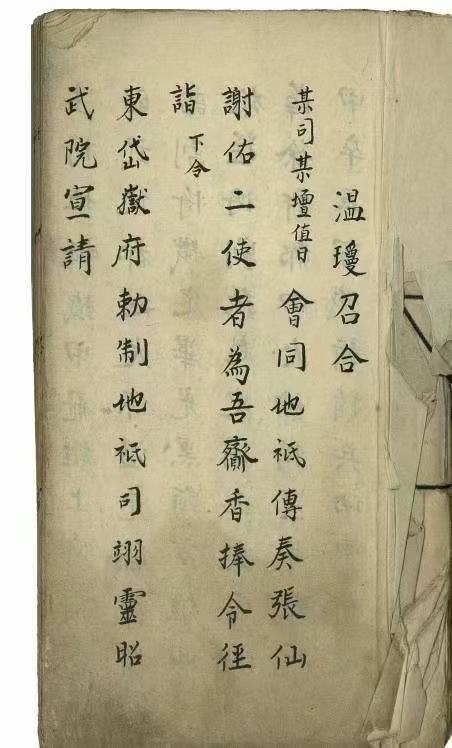 溫瓊召合
某司某壇值日會同地祇傳奏張仙
謝佑二使者為吾齎香捧令徑
詣下令
東岱嶽府勅制地祇司翊靈昭
武院宣請